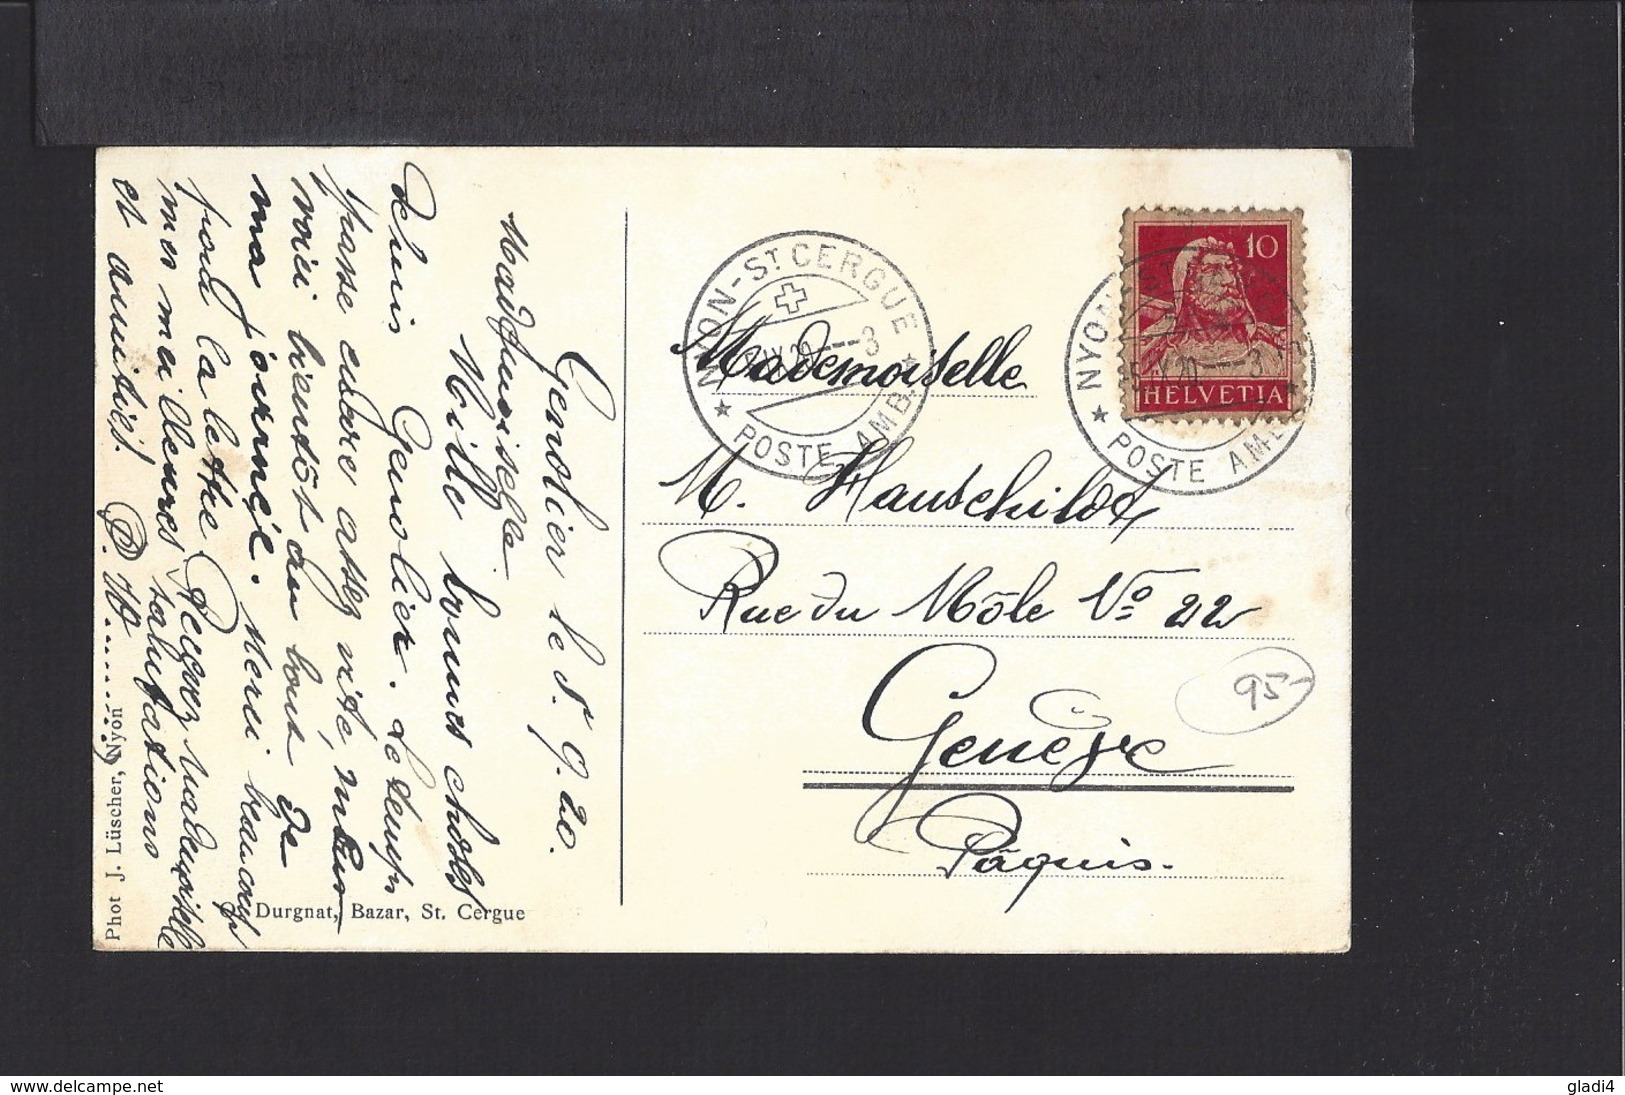 Genolier le 5. 9. 20.
Mademoiselle
Mille bonnes choses
depuis Genolier. Le temps
passe encore assez vite,
voici bientôt au bout de
ma journée. Merci beaucoup
pour la lettre Recevez Mademoiselle
mes meilleures salutations
et amitiés. P. W.
Phot J. Lüscher, Nyon
Durgnat, Bazar, St. Cergue
NYON-ST CERGUE
IX.20 — 3
★ POSTE AMB. ★
10
HELVETIA
NYON
IX.20 — 3
★ POSTE AMB. ★
Mademoiselle
M. Hauschildt
Rue du Môle No 22
Genève
Pâquis.
95-
www.delcampe.net
gladi4